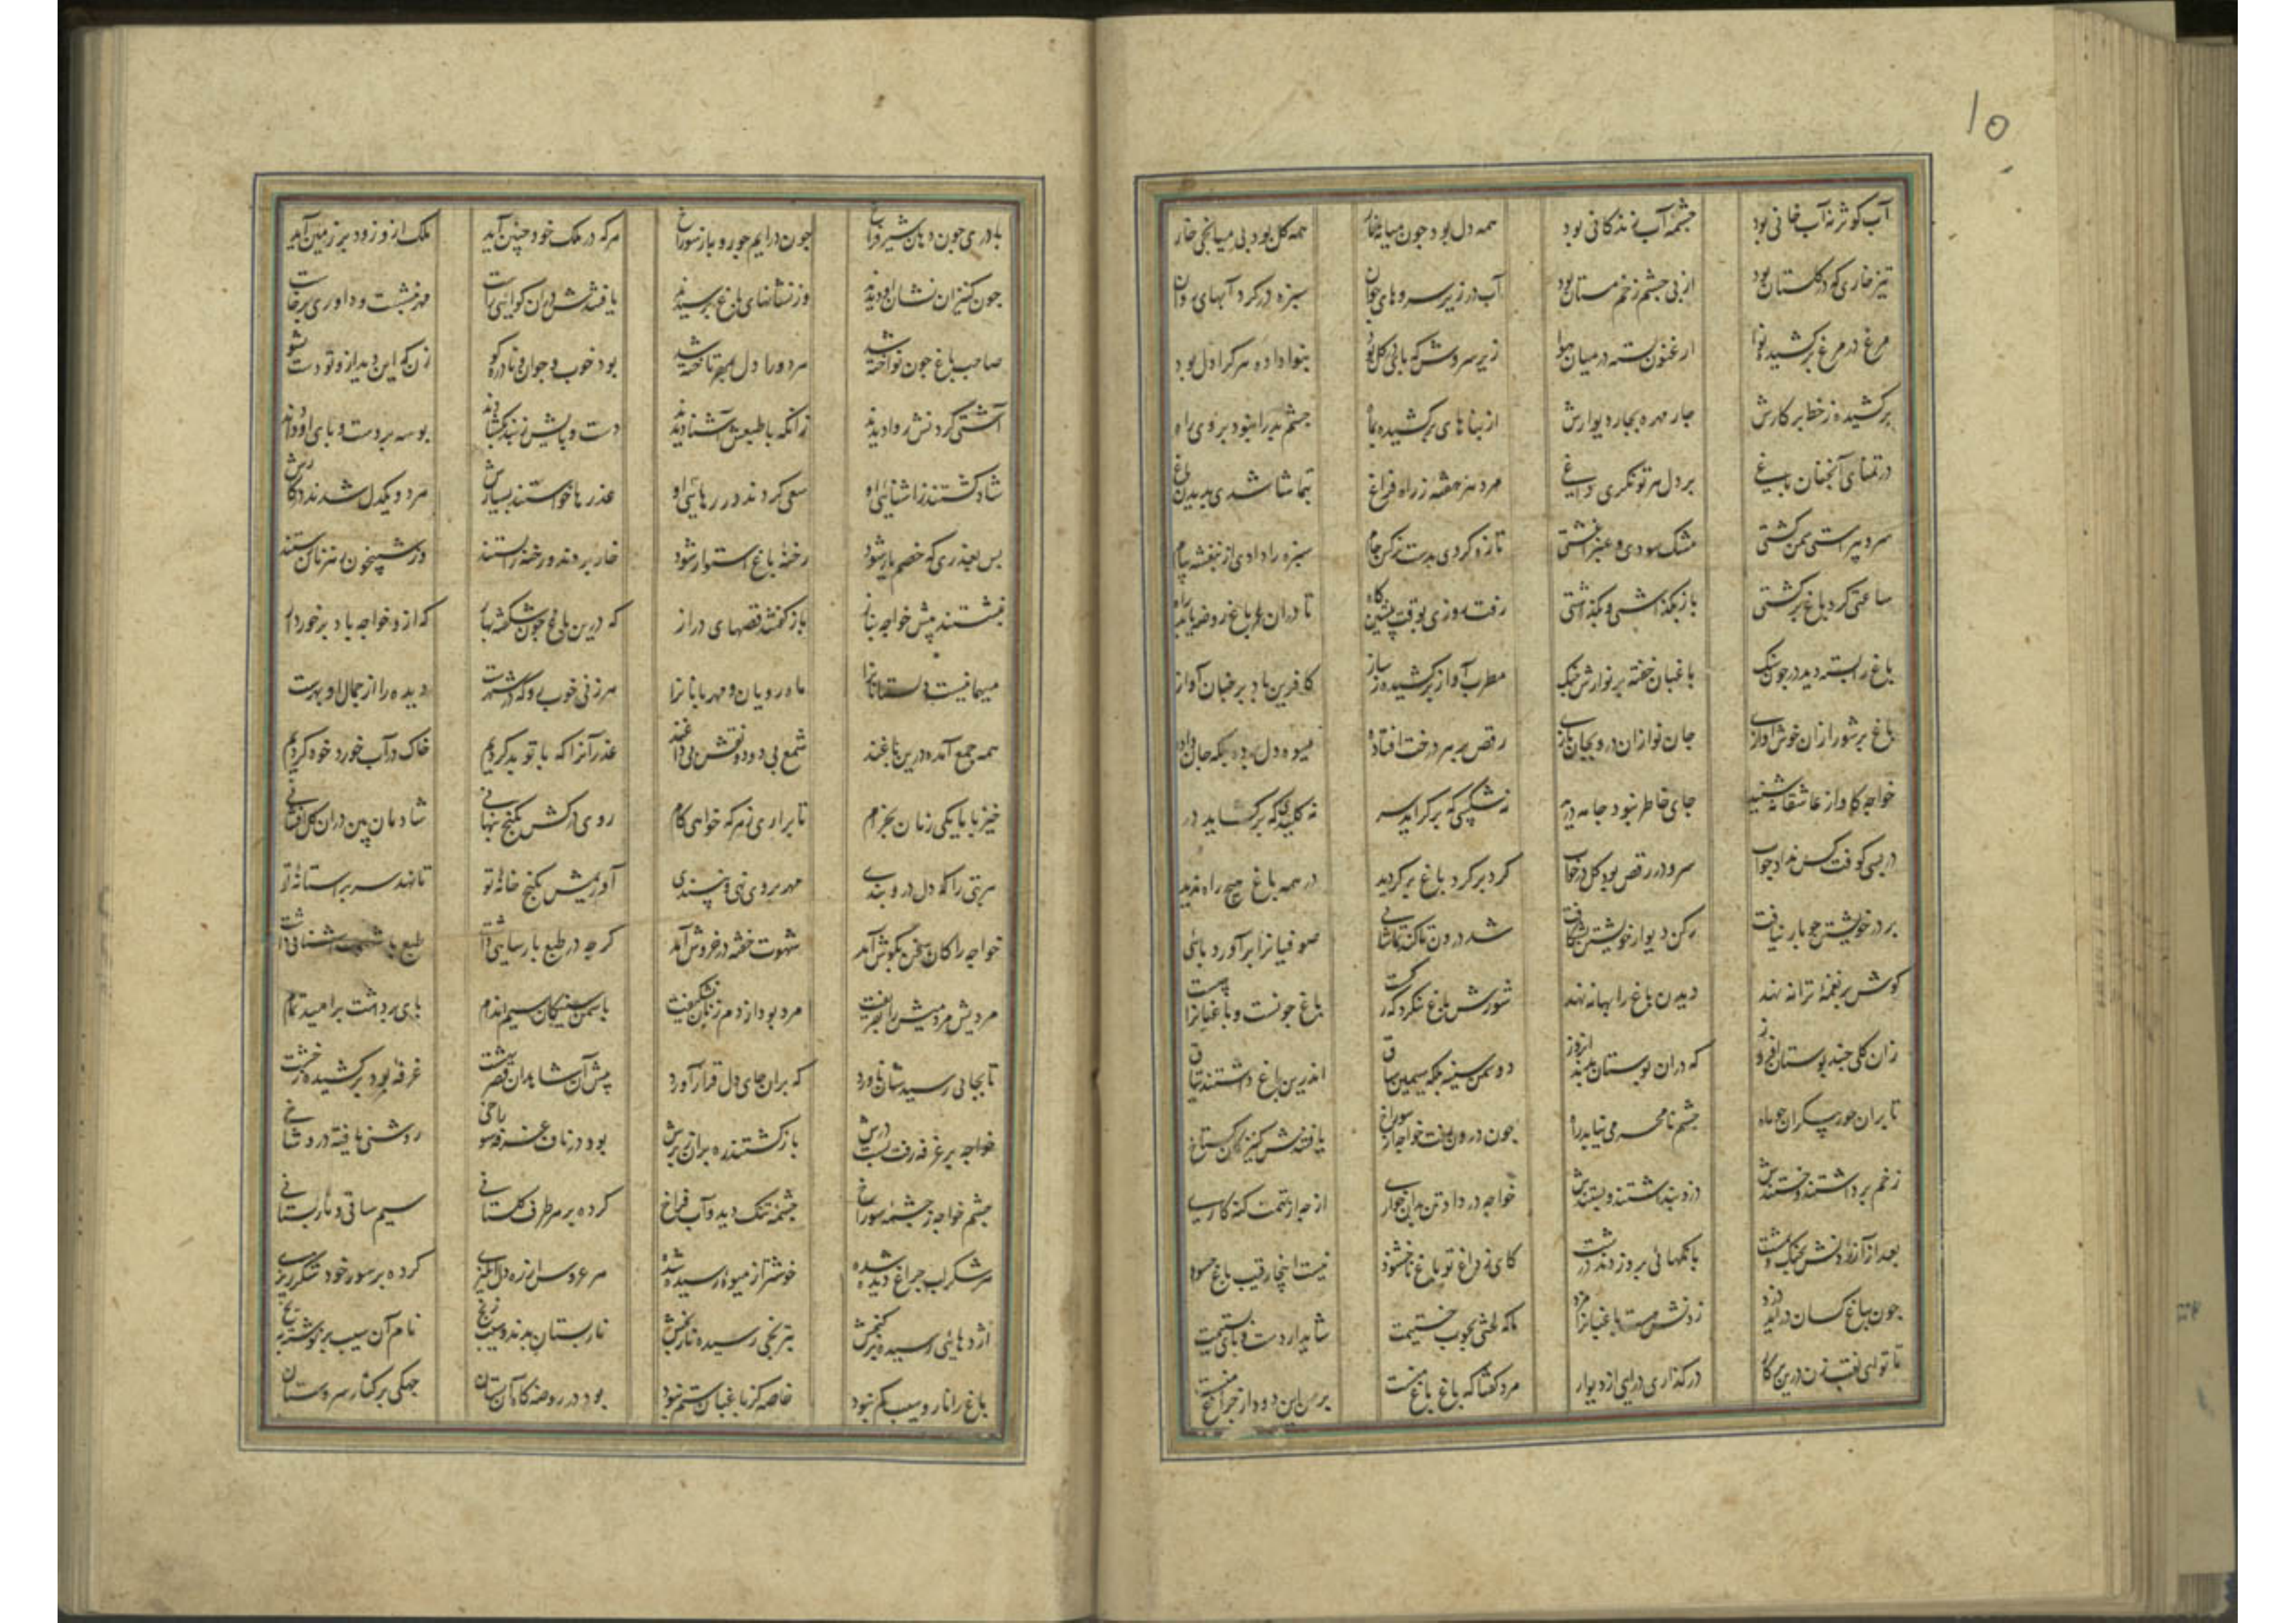 ۱۵
آب کوثر نه آب خانی بود چشمهٔ آب زندکانی بود همه دل بود جون میانهٔ نار همه کل بود بی میانجی خار
تیز خاری که در کلستان بود از پی جشم زخم مستان بود آب در زیر سروهای جوان سبزه در کرد آبهای روان
مرغ در مرغ برکشیده نوا ارغنون بسته در میان هوا زیر سروش که پای در کل بود بنوا داده هرکرا دل بود
برکشیده ز خط پرکارش جار مهره بجار دیوارش از بناهای برکشیده بماه جشم بد را نبود بر وی راه
در تمنای آنجنان باغی بر دل هر توانکری داغی مرد هر هفته ز راه فراغ بتماشا شدی بدیدن باغ
سرو پیراستی سمن کشتی مشک سودی و عنبر اغشتی تازه کردی بدست نرکس جام سبزه را دادی از بنفشه پیام
ساعتی کرد باغ برکشتی باز بکذاشتی و بکذشتی رفت روزی بوقت پیشین کاه تا دران باغ روضه یابد راه
باغ را بسته دید در جون سنک باغبان خفته بر نوازش جنک مطرب آواز برکشیده بساز کافرین باد بر جنان آواز
باغ پر شور ازان خوش آوازی جان نوازان درو بجان بازی رقص بر هر درخت افتاده میوه دل برده بلکه جان داده
خواجه کاواز عاشقانه شنید جای خاطر نبود جامه درید نه شکیبی که برکراید سر نه کلیدی که برکشاید در
در بسی کوفت کس نداد جواب سرو در رقص بود کل در خواب کرد بر کرد باغ برکردید در همه باغ هیج راه ندید
بر در خویشتن جو بار نیافت رکن دیوار خویشتن بشکافت شد درون تا کند تماشائی صوفیانرا برآورد پائی
کوش بر نغمهٔ ترانه نهد دیدن باغ را بهانه نهد شورش باغ بنکرد که کراست باغ جونست و باغبانرا
زان کلی جند بوستان افروز که دران بوستان بدند انروز دو سمن سینه بلکه سیمین ساق اندرین باغ داشتند یتاق
تا بران حور پیکران جو ماه جشم نامحرمی نیابد راه جون درون رفت خواجه از سوراخ یافتندش کنیزکان کستاخ
زخم برداشتند و خستندش دزد پنداشتند و بستندش خواجه در داد تن بدان خواری از جه از تهمت کنه کاری
بعد از آزردنش بجنک و بمشت بانکهائی برو زدند درشت کای ز داغ تو باغ ناخشنود نیست اینجا رقیب باغ جسود
جون بباغ کسان درآید دزد زدنش هست باغبانرا مزد ما که لختی بجوب خستیمت شاید ار دست و پای بستیمت
تا تو ای نقب زن درین پرکار درکذاری درائی از دیوار مرد کفتا که باغ باغ منست بر من این دود از جراغ منست
با دری جون دهان شیر فراخ جون درایم جو روبه از سوراخ هرکه در ملک خود جنین آید ملک ازو زود بر زمین آید
جون کنیزان نشان او دیدند وز نشانهای باغ پرسیدند یافتندش دران کواهی راست مهر بنشست و داوری برخاست
صاحب باغ جون نواخته شد مرد و را دل بمهر تاخته شد بود خوب و جوان و نادره کو زن که این دید ازو تو دست بشو
آشتی کردنش روا دیدند زانکه با طبعش آشنا دیدند دست و پایش ز بند بکشادند بوسه بر دست و پای او دادند
شاد کشتند ز اشنائی او سعی کردند در رهائی او عذرها خواستند بسیارش هر دو یکدل شدند در کارش
پس بعذری که خصم یار شود رخنهٔ باغ استوار شود خار بردند و رخنه را بستند وز شبیخون رهزنان رستند
بنشستند پیش خواجه بناز بازکفتند قصهای دراز که درین باغ جون شکفته بهار که ازو خواجه باد برخوردار
میهمانیست دلستانانرا ماه رویان و مهربانانرا هر زنی خوب رو که در شهرست دیده را از جمال او بهرست
همه جمع آمده درین باغند شمع بی دود و نقش بی داغند عذر آنرا که با تو بد کردیم خاک در آب خورد خود کردیم
خیز با ما یکی زمان بخرام تا براری ز هر که خواهی کام روی درکش بکنج پنهانی شادمان بین دران کل افشانی
هر بتی را که دل درو بندی مهر بروی نهی و بپسندی آوریمش بکنج خانهٔ تو تا نهد سر بر استانهٔ تو
خواجه را کان سخن بکوش آمد شهوت خفته در خروش آمد کرجه در طبع پارسائی داشت طبع با شهوت آشنائی داشت
مردیش مردمیش را بفریفت مرد بود از دم زنان نشکیفت با سمن سینکان سیم اندام پای برداشت بر امید تمام
تا بجائی رسیدشان ناورد که بران جای دل قرار آورد پیش آن شاهدان قصر بهشت غرفهٔ بود برکشیده ز خشت
خواجه بر غرفه رفت بست درش بازکشتند رهبران ز برش بود در ناف غرفه سوراخی روشنی یافته درو شاخی
جشم خواجه ز جشمهٔ سوراخ جشمهٔ تنک دید و آب فراخ کرده بر هر طرف کلستانی سیم ساقی و نار پستانی
هر شکر لب جراغ دیده شده خوشتر از میوهٔ رسیده شده هر عروس از ره دل انکیزی کرده بر سور خود شکرریزی
اژدهائی رسیده بر کنجش بترنجی رسیده نارنجش نار پستان بدند و سیب زنخ نام آن سیب بر نوشته بیخ
باغ را نار و سیب کم نبود خاصه کز باغبان ستم نبود بود در روضه کاه آن بستان جمنی بر کنار سروستان